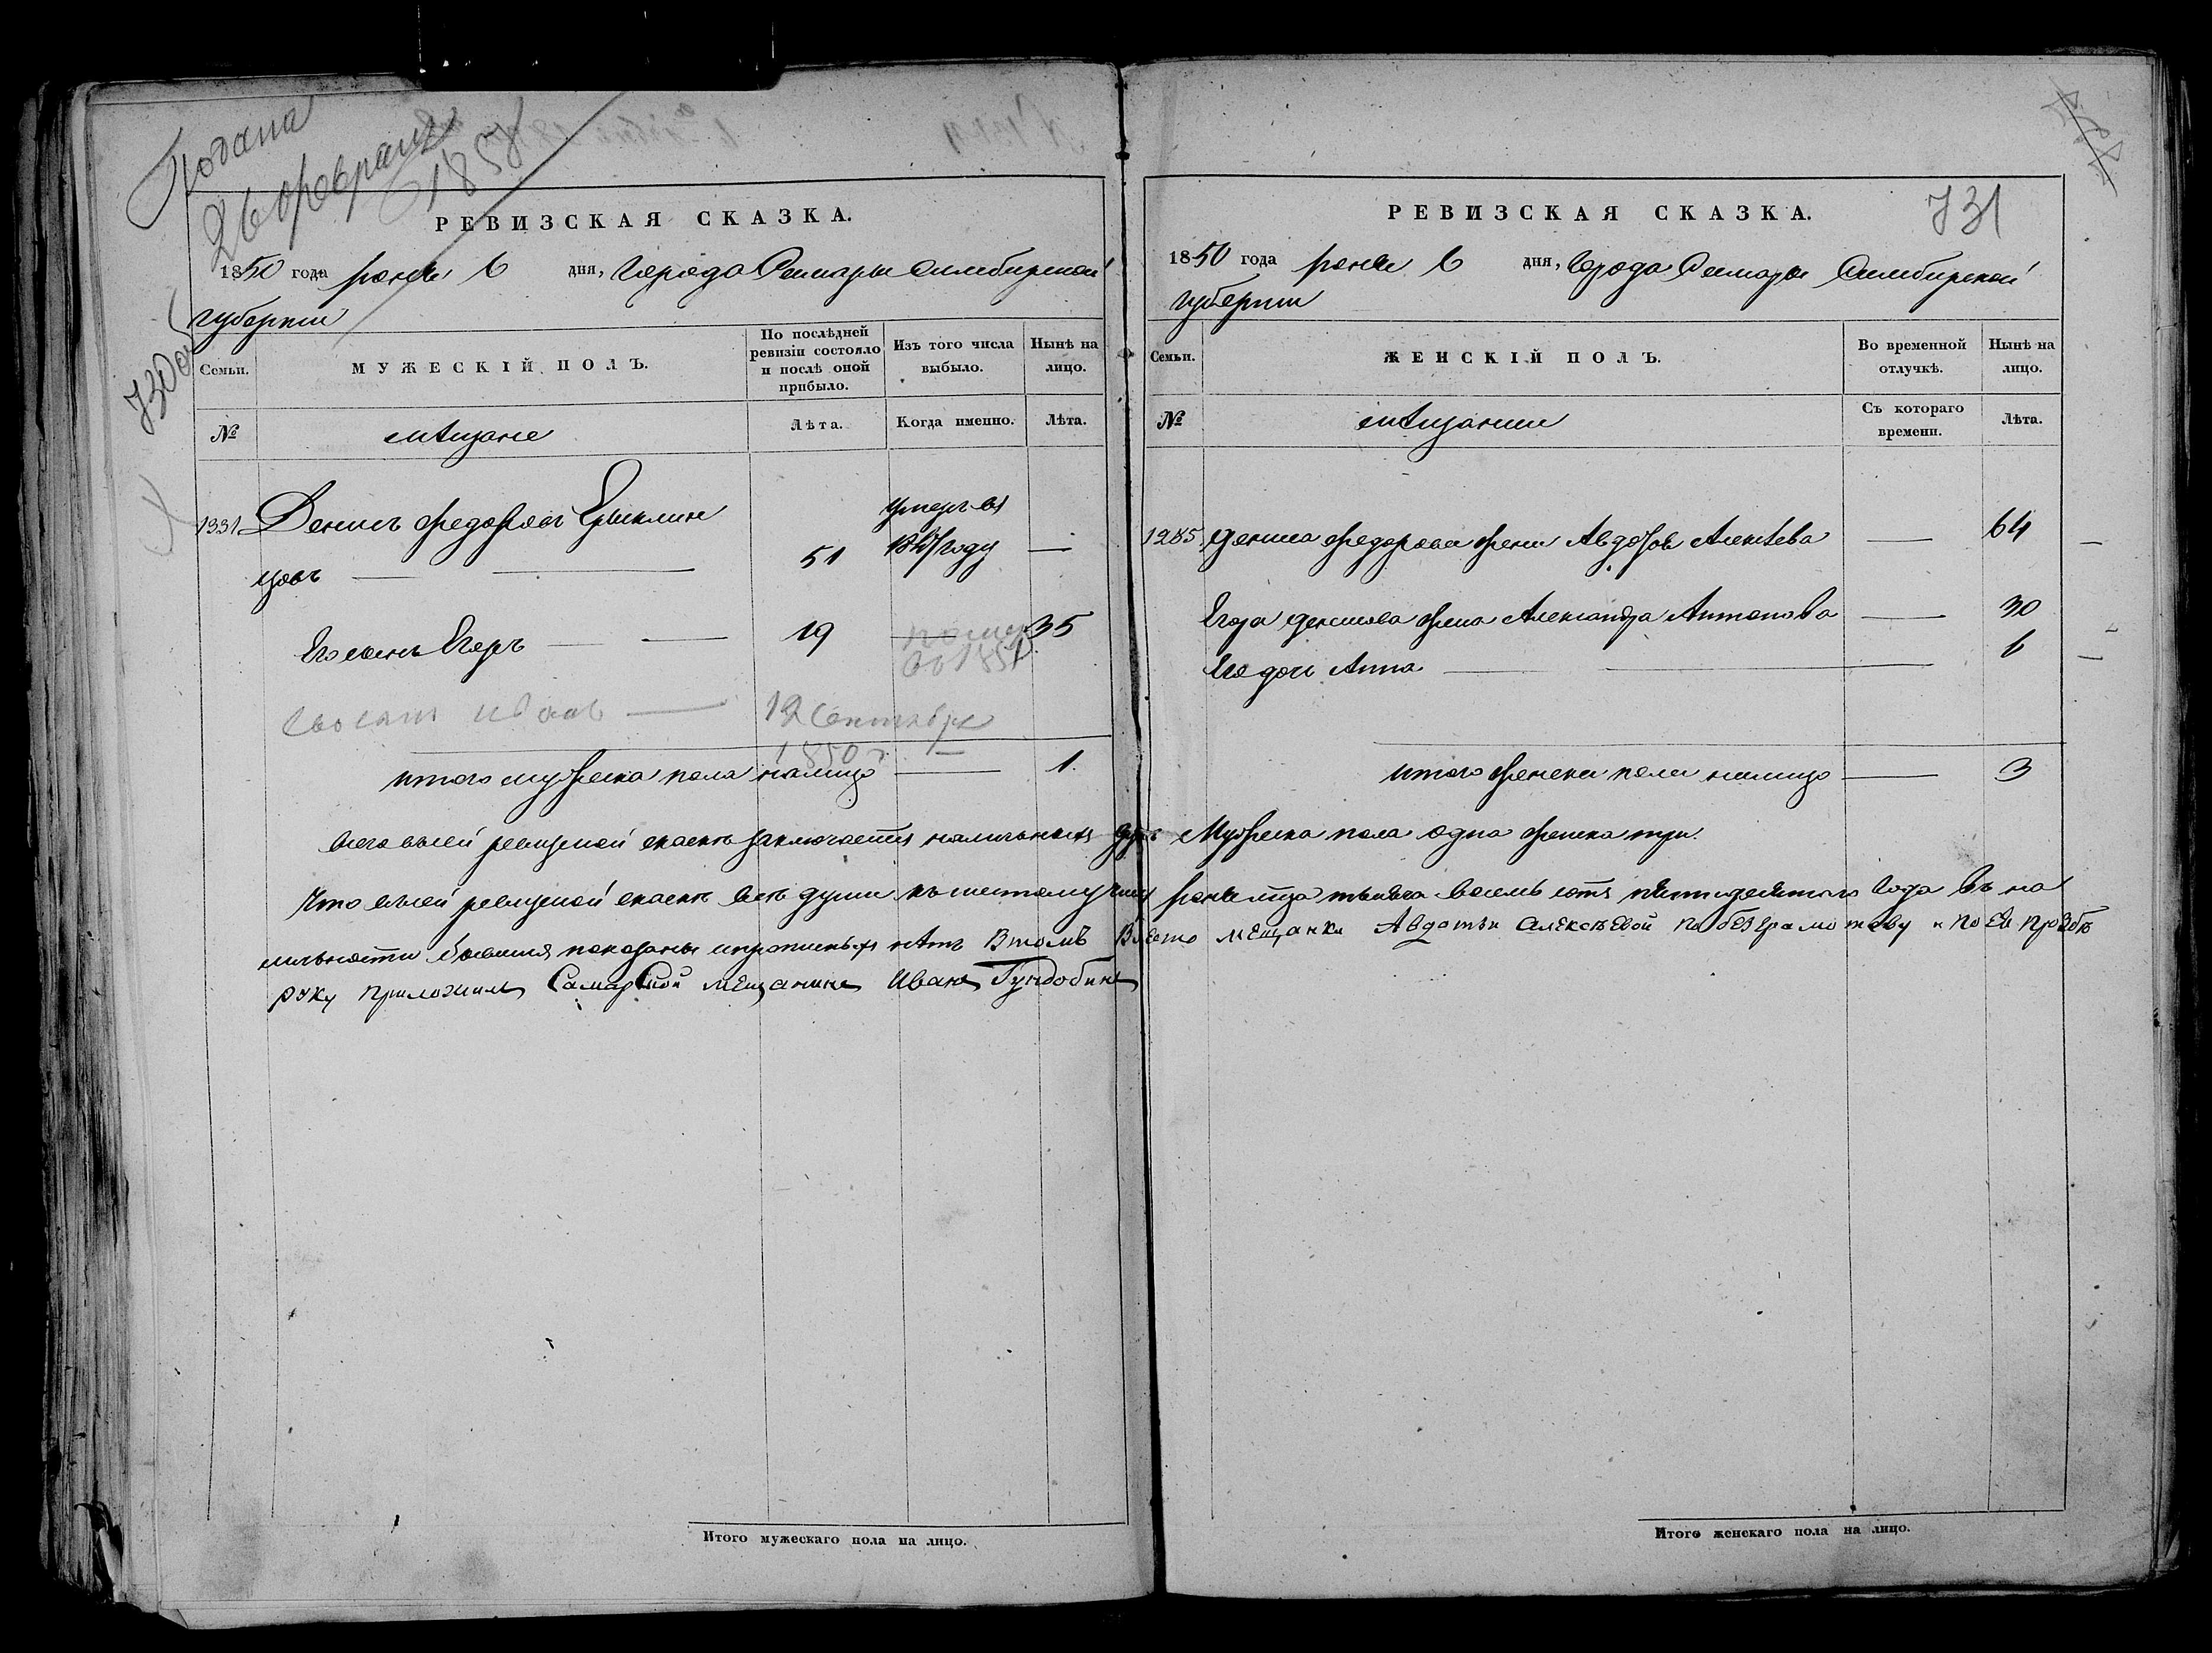 Подана
26 февраля
1858
730 об
РЕВИЗСКАЯ СКАЗКА.
1850 года июня 6 дня, Города Самары Симбирской
губернии
Семьи.
МУЖЕСКІЙ ПОЛЪ.
По послѣдней
ревизіи состояло
и послѣ оной
прибыло.
Изъ того числа
выбыло.
Нынѣ на
лицо.
№
мѣщане
Лѣта.
Когда именно.
Лѣта.
1331 Денисъ Федоровъ Ерыклин
цовъ — — 51 умеръ въ году —
Его сынъ Егоръ — — 19 — 35
помер
во 185
Иванъ — 12 Сентября
1850 г —
итого мужеска пола налицо — 1.
РЕВИЗСКАЯ СКАЗКА.
731
1850 года июня 6 дня, Города Самары Симбирской
губернии
Семьи.
ЖЕНСКІЙ ПОЛЪ.
Во временной
отлучкѣ.
Нынѣ на
лицо.
№
мѣщанки
Съ котораго
времени.
Лѣта.
1285 Дениса Федорова жена Авдотья Алексѣева — 64
Егора Денисова жена Александра Антонова — 30
Его дочь Анна — — 6
итого женска пола налицо — 3
Всего в сей ревизской сказкѣ заключается наличныхъ душъ Мужеска пола одна женска три.
Что в сей ревизской сказкѣ всѣ души къ шестому числу июня тысяча восемь сотъ пятидесятого года въ на
личности бывшия показаны и прописныхъ нѣтъ Втомъ Вместо мещанки Авдотьи Алексѣевой по безграмотству и по ей прозбѣ
руку приложилъ Самарской мещанинъ Иванъ Гундобинъ
Итого мужескаго пола на лицо.
Итого женскаго пола на лицо.